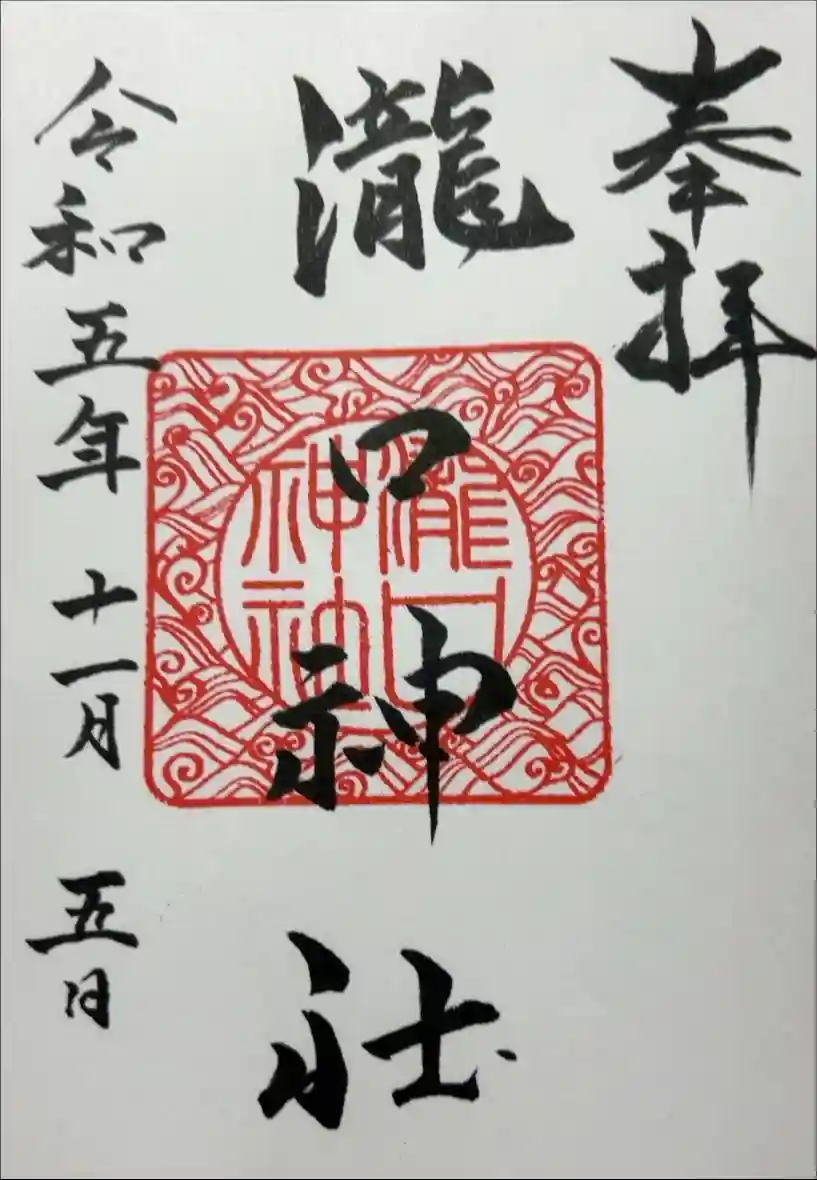 奉拝
瀧口神社
瀧口
神社
令和五年 十一月 五日